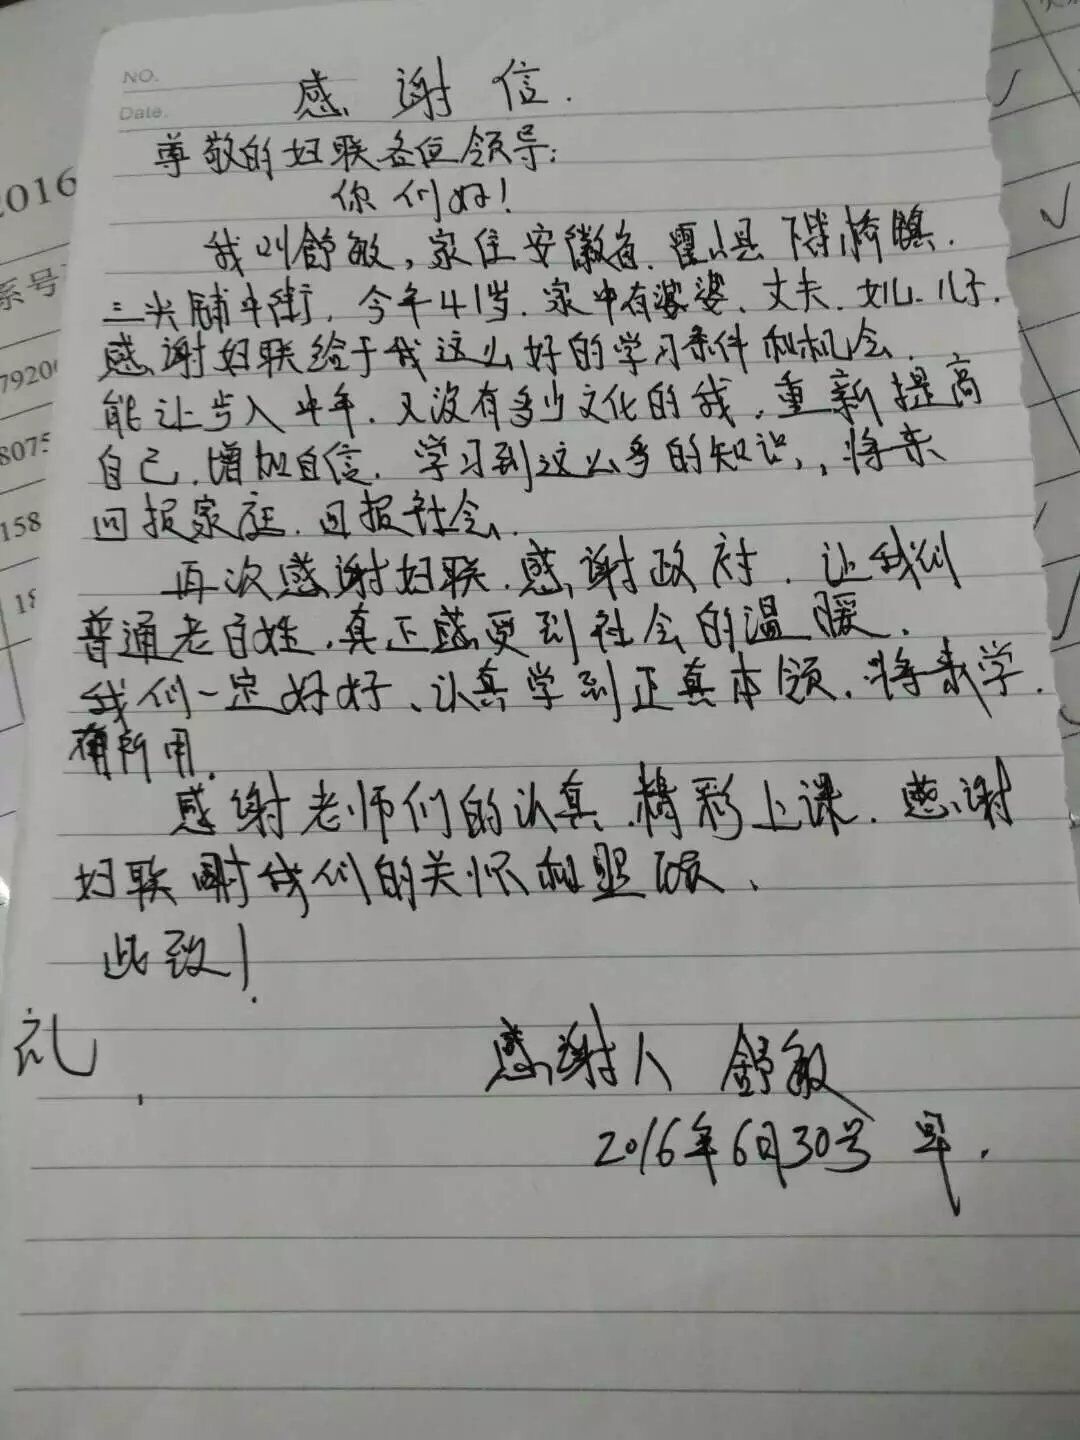 NO.
Date.
感谢信.
尊敬的妇联各位领导:
你们好!
我叫舒敏,家住安徽省.霍山县下符桥镇.
三尖铺中街.今年41岁.家中有婆婆、丈夫.女儿.儿子.
感谢妇联给于我这么好的学习条件和机会.
能让步入中年.又没有多少文化的我.重新提高
自己.增加自信.学习到这么多的知识,将来
回报家庭.回报社会.
再次感谢妇联.感谢政府.让我们
普通老百姓.真正感受到社会的温暖.
我们一定好好、认真学到正真本领.将来学.
有所用.
感谢老师们的认真.精彩上课.感谢
妇联对我们的关怀和照顾、
此致!
礼
感谢人 舒敏
2016年6月30号 早.
2016
系号
7920
8075
158
18